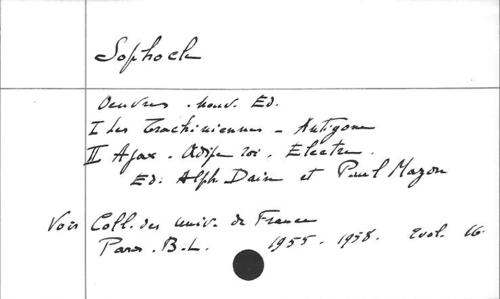 Sophocle
Oeuvres . nouv. Ed.
I Les Trachiniennes - Antigone
II Ajax . Œdipe roi . Electre .
Ed. Alph. Dain et Paul Mazon
Voir Coll. des univ. de France
Paris . B. L. 1955 . 1958 . 2 vol. 16.